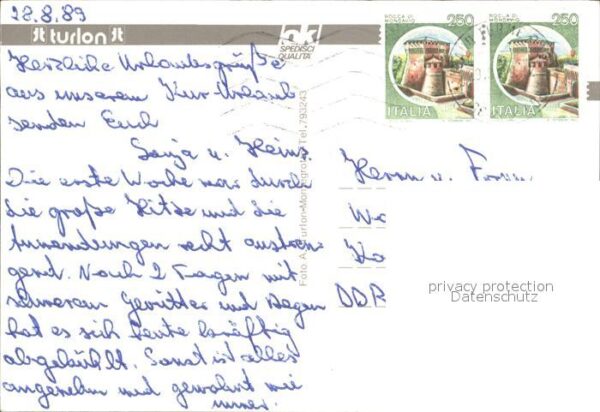 28.8.89
turlon
ok
SPEDISCI
QUALITÀ
ROCCA DI
MONDAVIO
250
ITALIA
ROCCA DI
MONDAVIO
250
ITALIA
Herzliche Urlaubsgrüße
aus unserem Kur-Urlaub
senden Euch
Sonja u. Heinz.
Die erste Woche war durch
die große Hitze und die
Anwendungen recht anstren-
gend. Nach 2 Tagen mit
schwerem Gewitter und Regen
hat es sich heute kräftig
abgekühlt. Sonst ist alles
angenehm und gewohnt wie
immer.
Tel. 793243
Herrn u.
DDR
privacy protection
Datenschutz